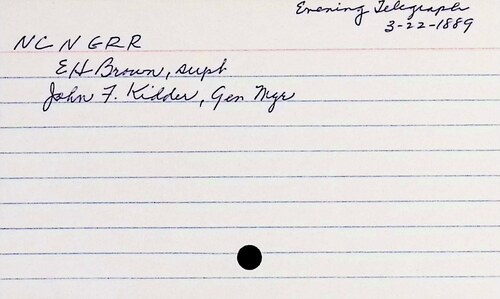 Evening Telegraph
3-22-1889
NC N GRR
EH Brown, supt
John F. Kidder, Gen Mgr